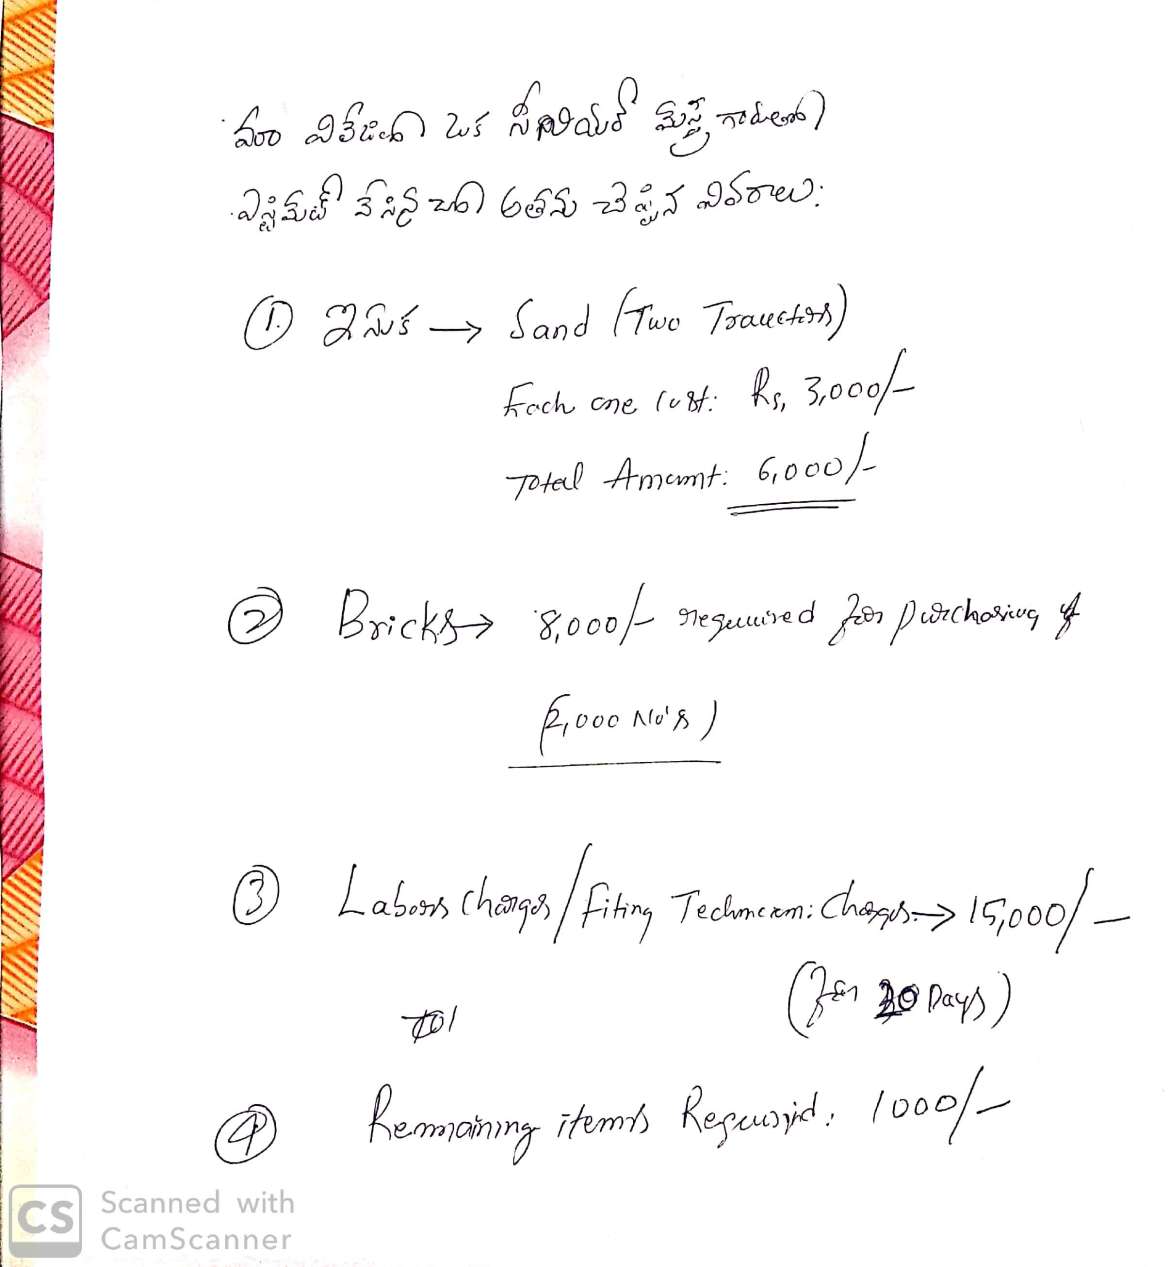 మా విలేజిలో ఒక సీనియర్ మేస్త్రి గారితో
ఎస్టిమేట్ వేసినచో అతను చెప్పిన వివరాలు:
①. ఇసుక → Sand (Two Tractors)
Each one cost: Rs, 3,000/-
Total Amount: 6,000/-
② Bricks → 8,000/- required for purchasing of
(2,000 No's)
③ Labors charges/fiting Charges → 15,000/-
(for Days)
④ Remaining items 1000/-
CS Scanned with
CamScanner